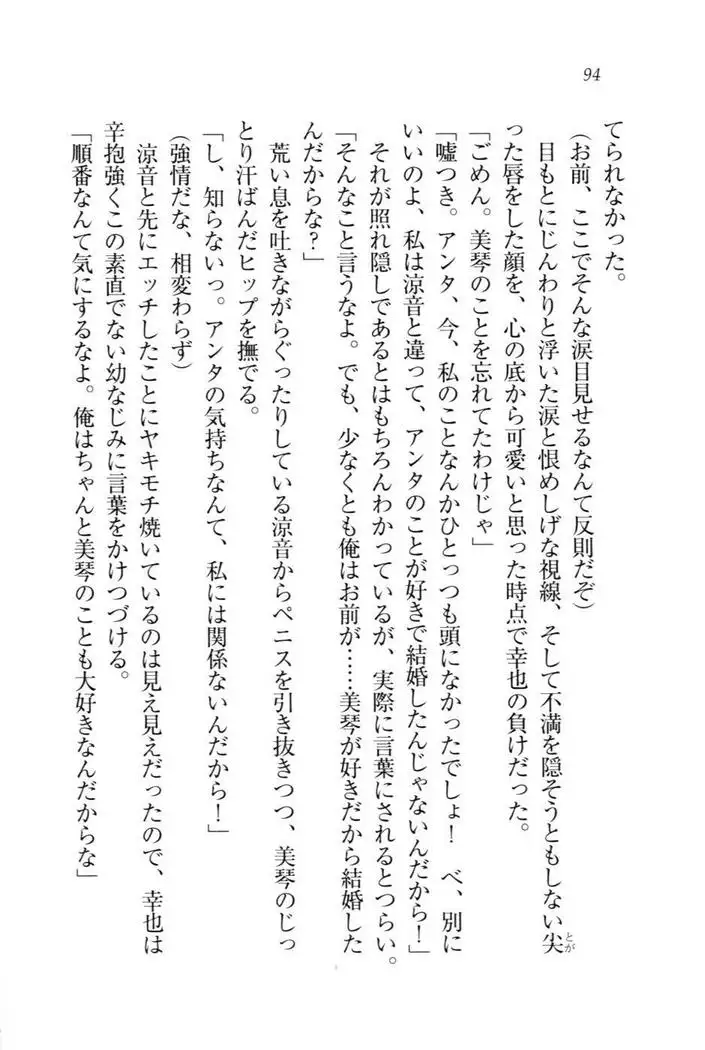 94
てられなかった。
（お前、ここでそんな涙目見せるなんて反則だぞ）
目もとにじんわりと浮いた涙と恨めしげな視線、そして不満を隠そうともしない尖
とが
った唇をした顔を、心の底から可愛いと思った時点で幸也の負けだった。
「ごめん。美琴のことを忘れてたわけじゃ」
「嘘つき。アンタ、今、私のことなんかひとっつも頭になかったでしょ！　べ、別に
いいのよ、私は涼音と違って、アンタのことが好きで結婚したんじゃないんだから！」
それが照れ隠しであるとはもちろんわかっているが、実際に言葉にされるとつらい。
「そんなこと言うなよ。でも、少なくとも俺はお前が……美琴が好きだから結婚した
んだからな？」
荒い息を吐きながらぐったりしている涼音からペニスを引き抜きつつ、美琴のじっ
とり汗ばんだヒップを撫でる。
「し、知らないっ。アンタの気持ちなんて、私には関係ないんだから！」
（強情だな、相変わらず）
涼音と先にエッチしたことにヤキモチ焼いているのは見え見えだったので、幸也は
辛抱強くこの素直でない幼なじみに言葉をかけつづける。
「順番なんて気にするなよ。俺はちゃんと美琴のことも大好きなんだからな」